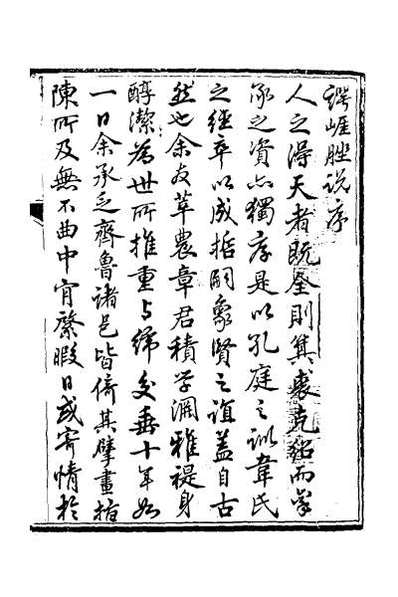 諤崖脞說序
人之得天者既全則其裘克紹而箕
承之資亦獨厚是以孔庭之訓韋氏
之經卒以成哲嗣象賢之誼蓋自古
然也余友草農章君積學淵雅禔身
醇潔為世所推重与締交垂十年如
一日余承乏齊魯諸邑皆倚其擘畫指
陳所及無不曲中肯綮暇日或寄情於